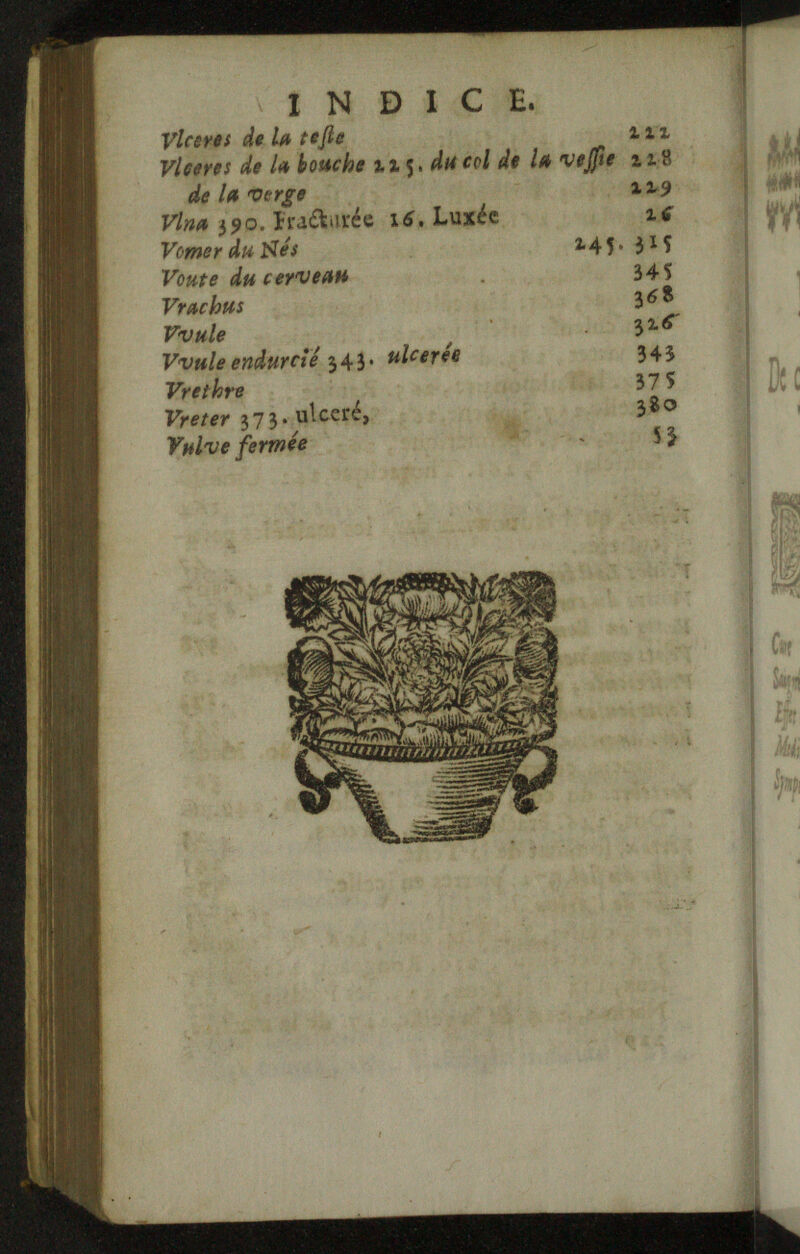 INDICE.
Vlceres de la teste 222
Vlceres de la bouche 225. du col de la vessie 228
de la verge 229
Vlna 390. Fracturée 16. Luxée 26
Vomer du Nés 245. 315
Voute du cerveau 345
Vrachus 368
Vvule 326
Vvule endurcié 343. ulcerée 343
Vrethre 375
Vreter 373. ulceré, 380
Vulve fermée 53